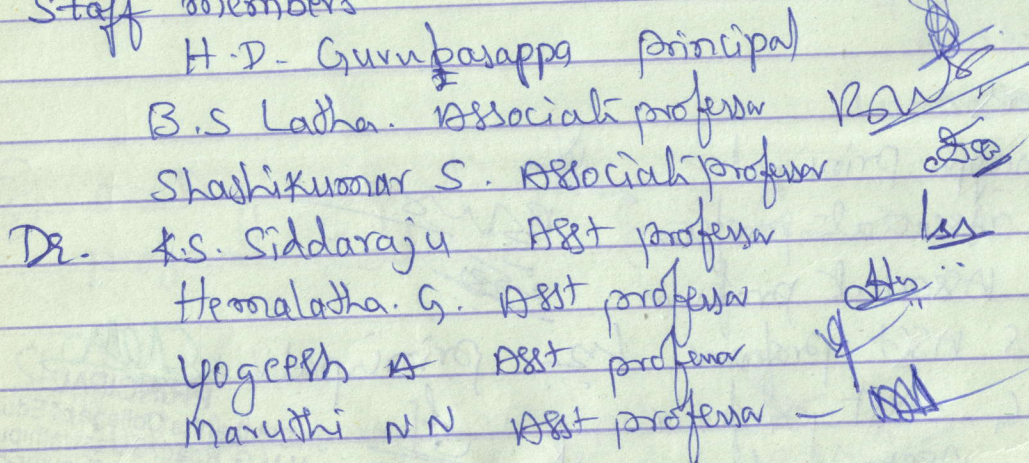 Staff members
H.D. Gurubasappa principal
B.S Latha. Associate professor
Shashikumar S. Associate professor
Dr. K.S. Siddaraju Asst professor
Hemalatha. G. Asst professor
Yogeesh A Asst professor
Maruthi N N Asst professor –